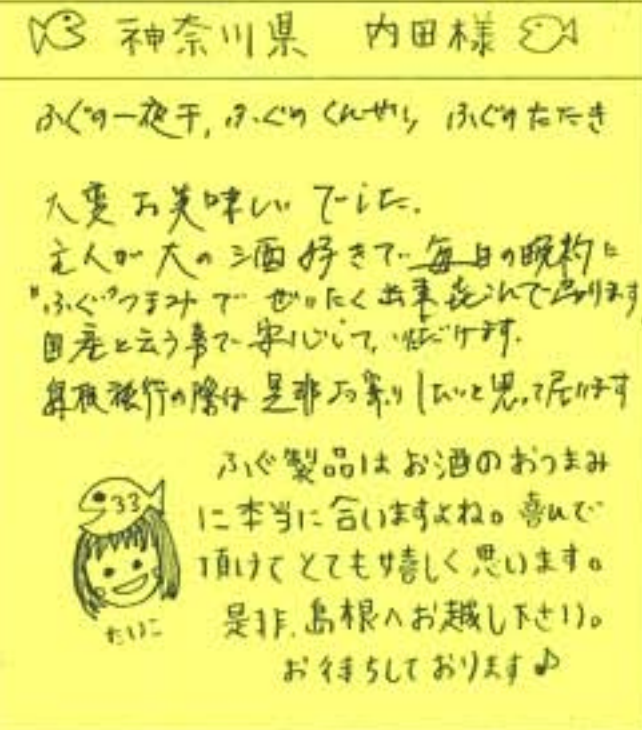 神奈川県 内田様
ふぐの一夜干, ふぐのくんせい, ふぐのたたき
大変お美味しいでした.
主人が大の酒好きで毎日の晩酌に
"ふぐ"つまみでぜいたく出来喜んで居ります
国産と云う事で安心して, いただけます.
島根旅行の際は是非お寄りしたいと思って居ります
ふぐ製品はお酒のおつまみ
に本当に合いますよね。喜んで
頂けてとても嬉しく思います。
33
是非、島根へお越し下さい。
お待ちしております♪